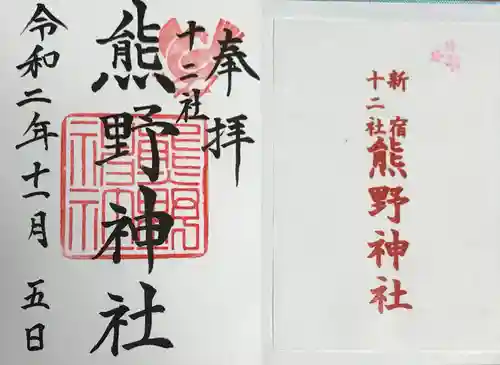 奉拝
十二社
熊野神社
令和二年十一月五日
新宿
十二社
熊野神社